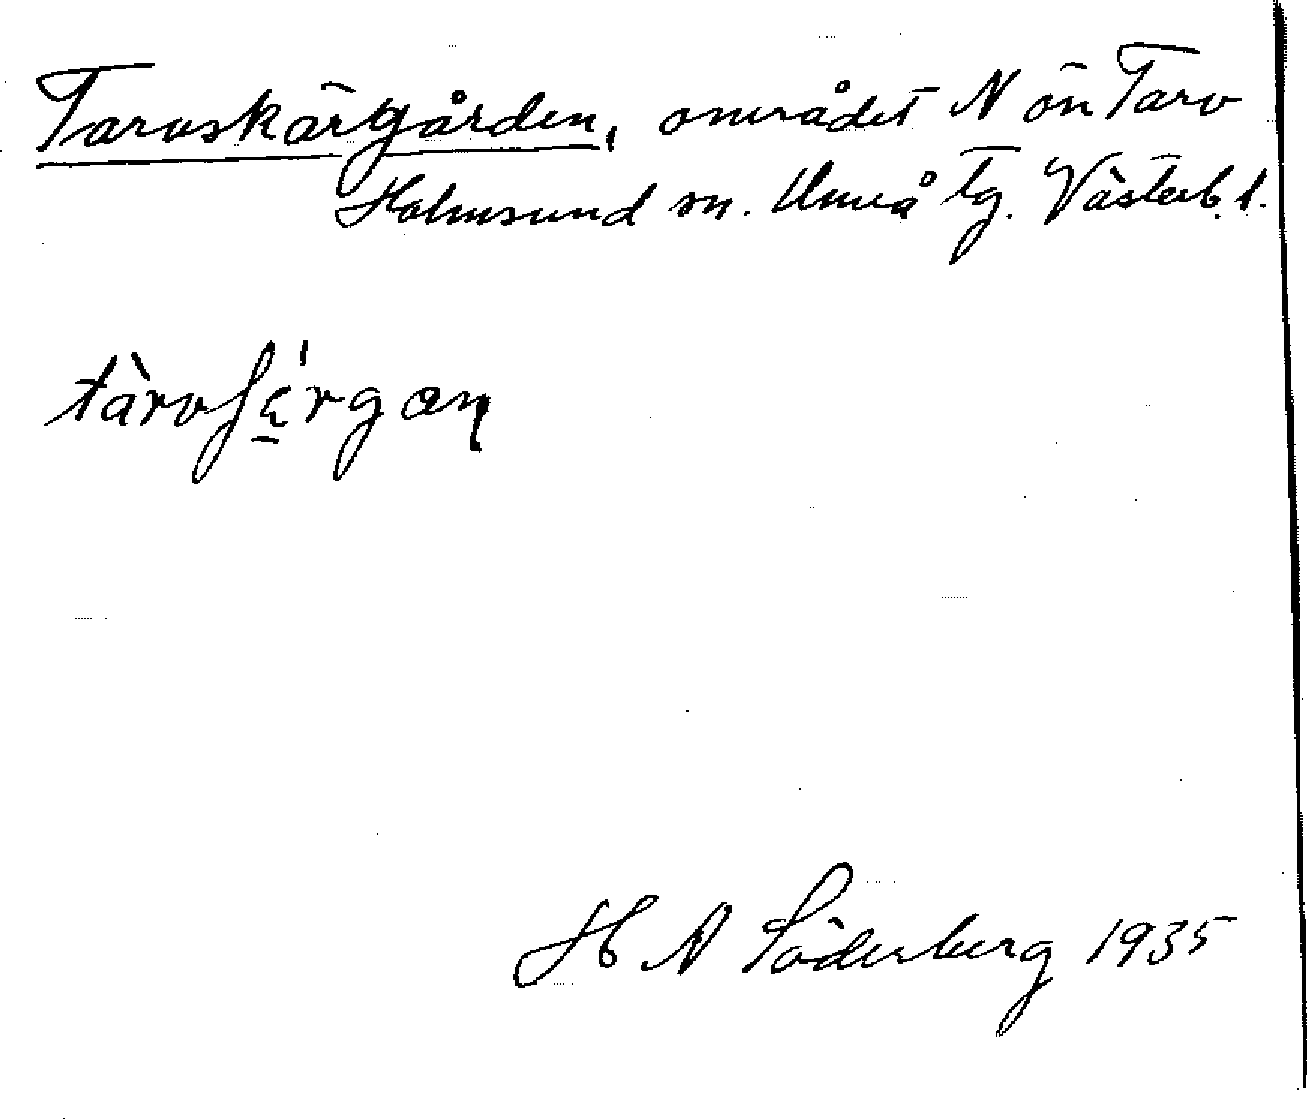 Tarvskärgården, området N ön Tarv
Holmsund sn. Umeå tg. Västerb. l.
tàrvʃä̠́rgan
H N Söderberg 1935